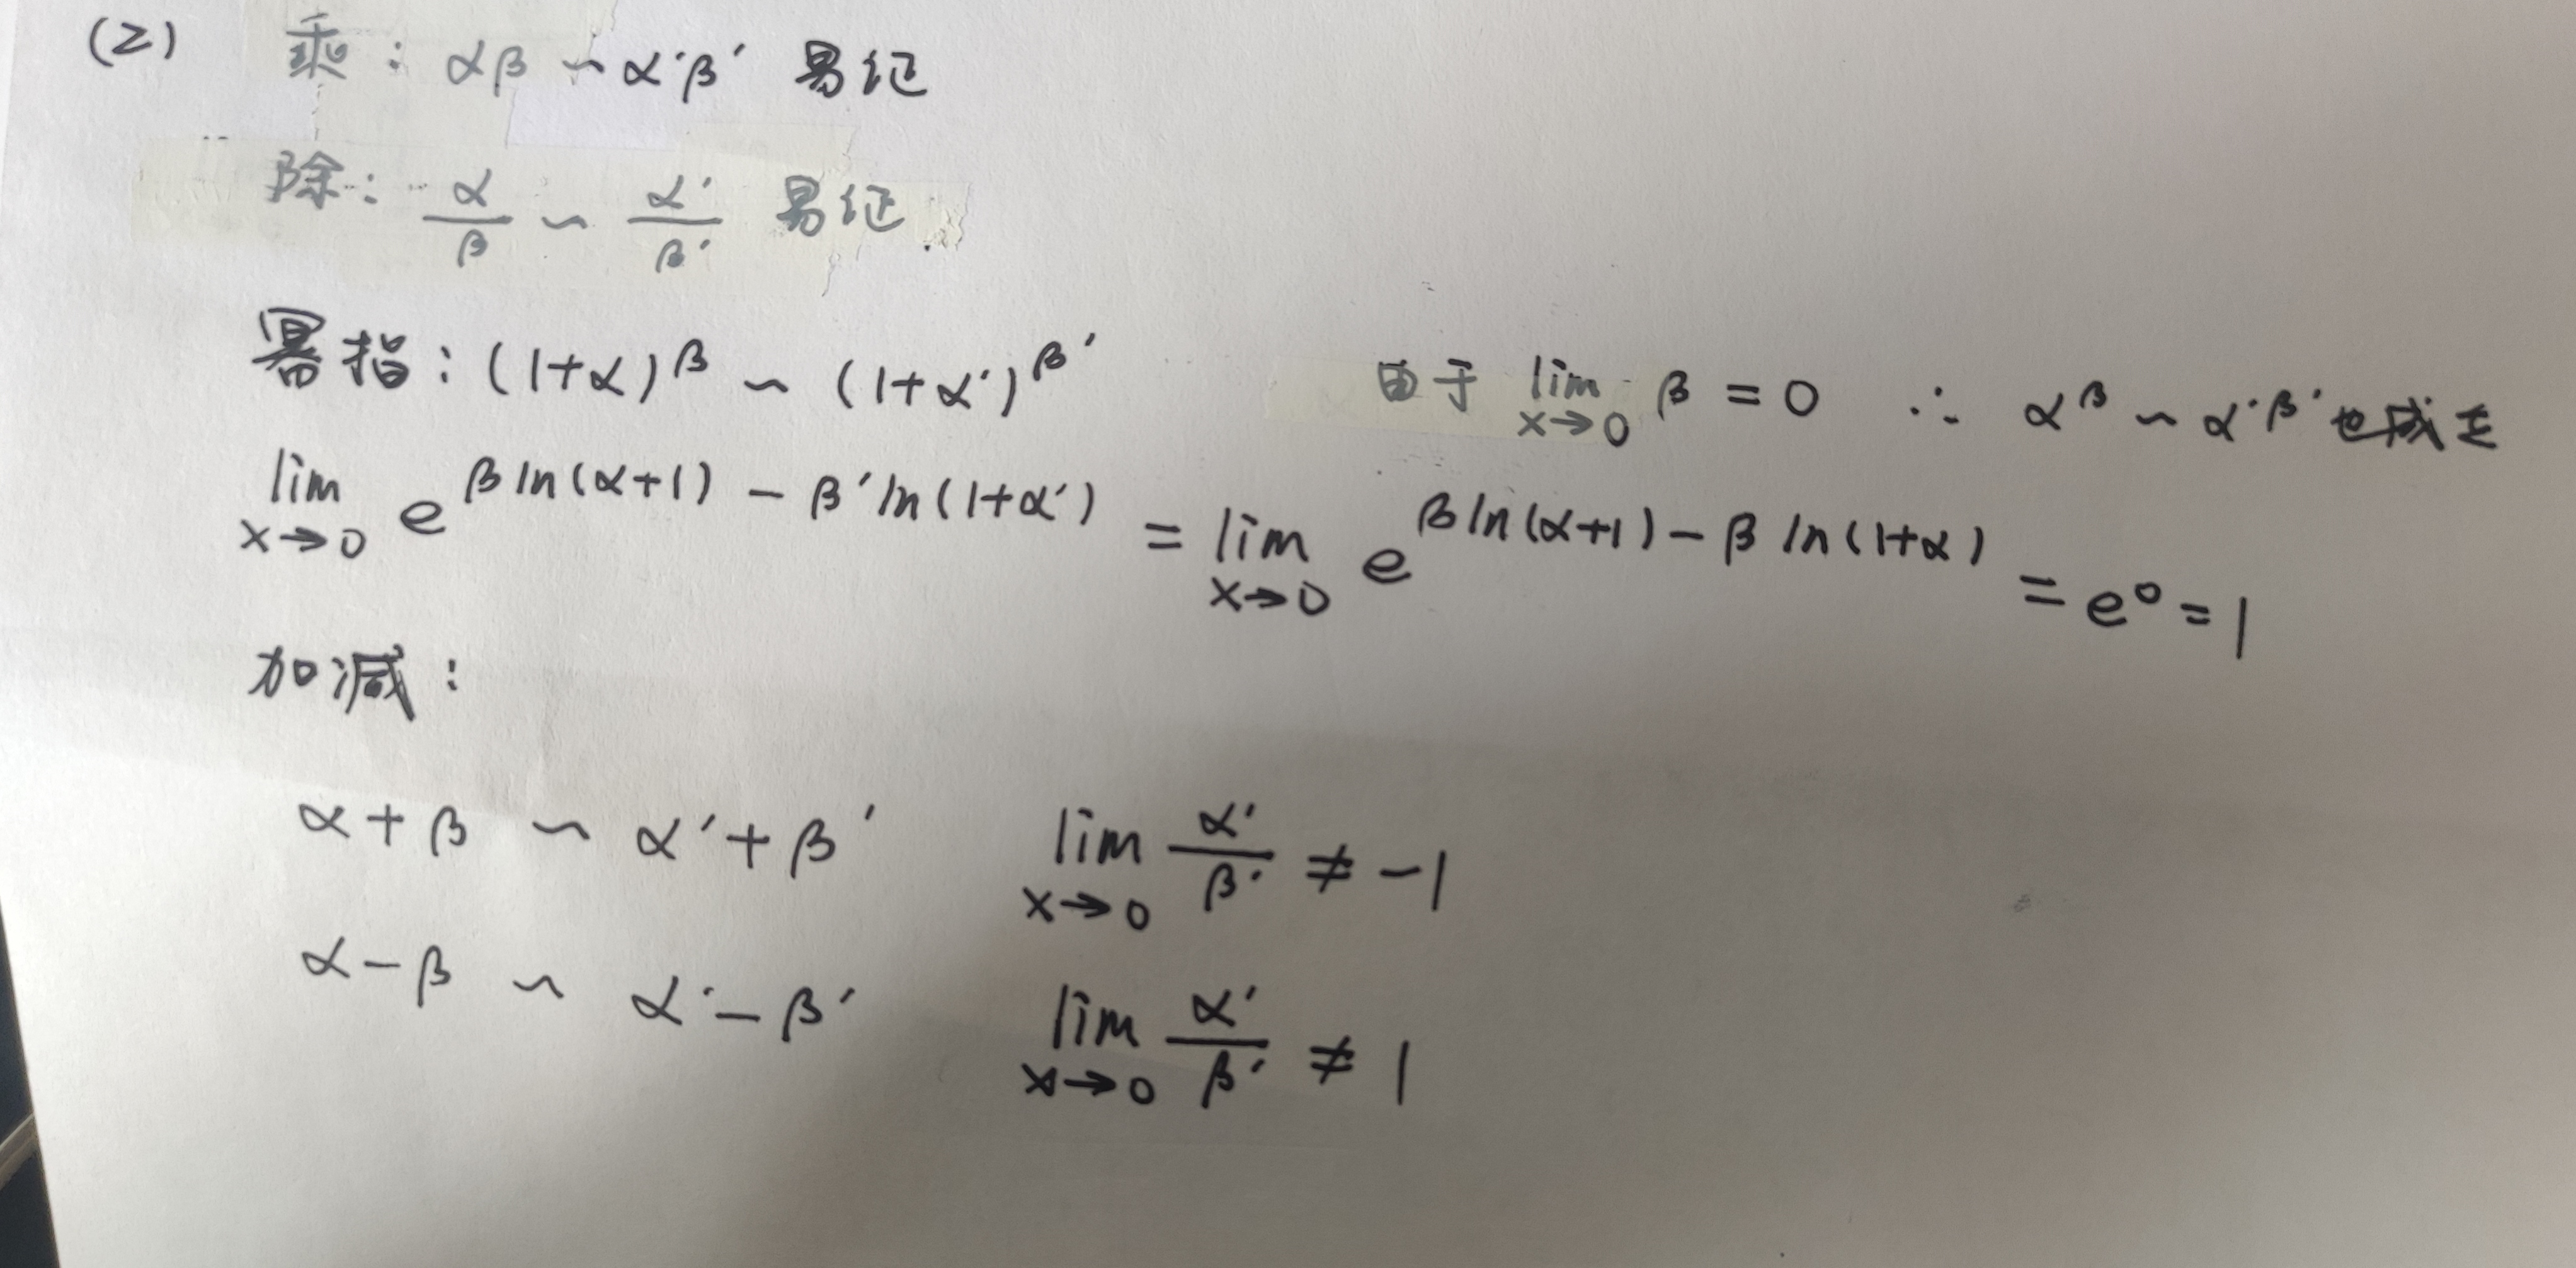 (2) 乘: αβ ~ α'β' 易证
除: α/β ~ α'/β' 易证.
幂指: (1+α)^β ~ (1+α')^β' 由于 lim x→0 β = 0 ∴ α^β ~ α'^β' 也成立
lim x→0 e^(β ln(α+1) - β' ln(1+α')) = lim x→0 e^(β ln(α+1) - β ln(1+α)) = e^0 = 1
加减:
α+β ~ α'+β' lim x→0 α'/β' ≠ -1
α-β ~ α'-β' lim x→0 α'/β' ≠ 1